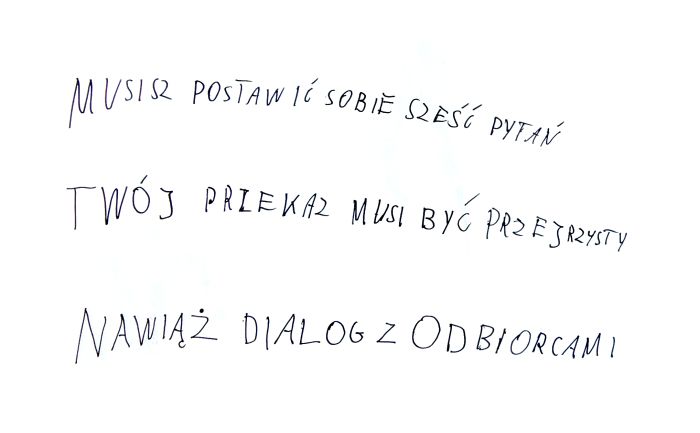 MUSISZ POSTAWIĆ SOBIE SZEŚĆ PYTAŃ
TWÓJ PRZEKAZ MUSI BYĆ PRZEJRZYSTY
NAWIĄŻ DIALOG Z ODBIORCAMI